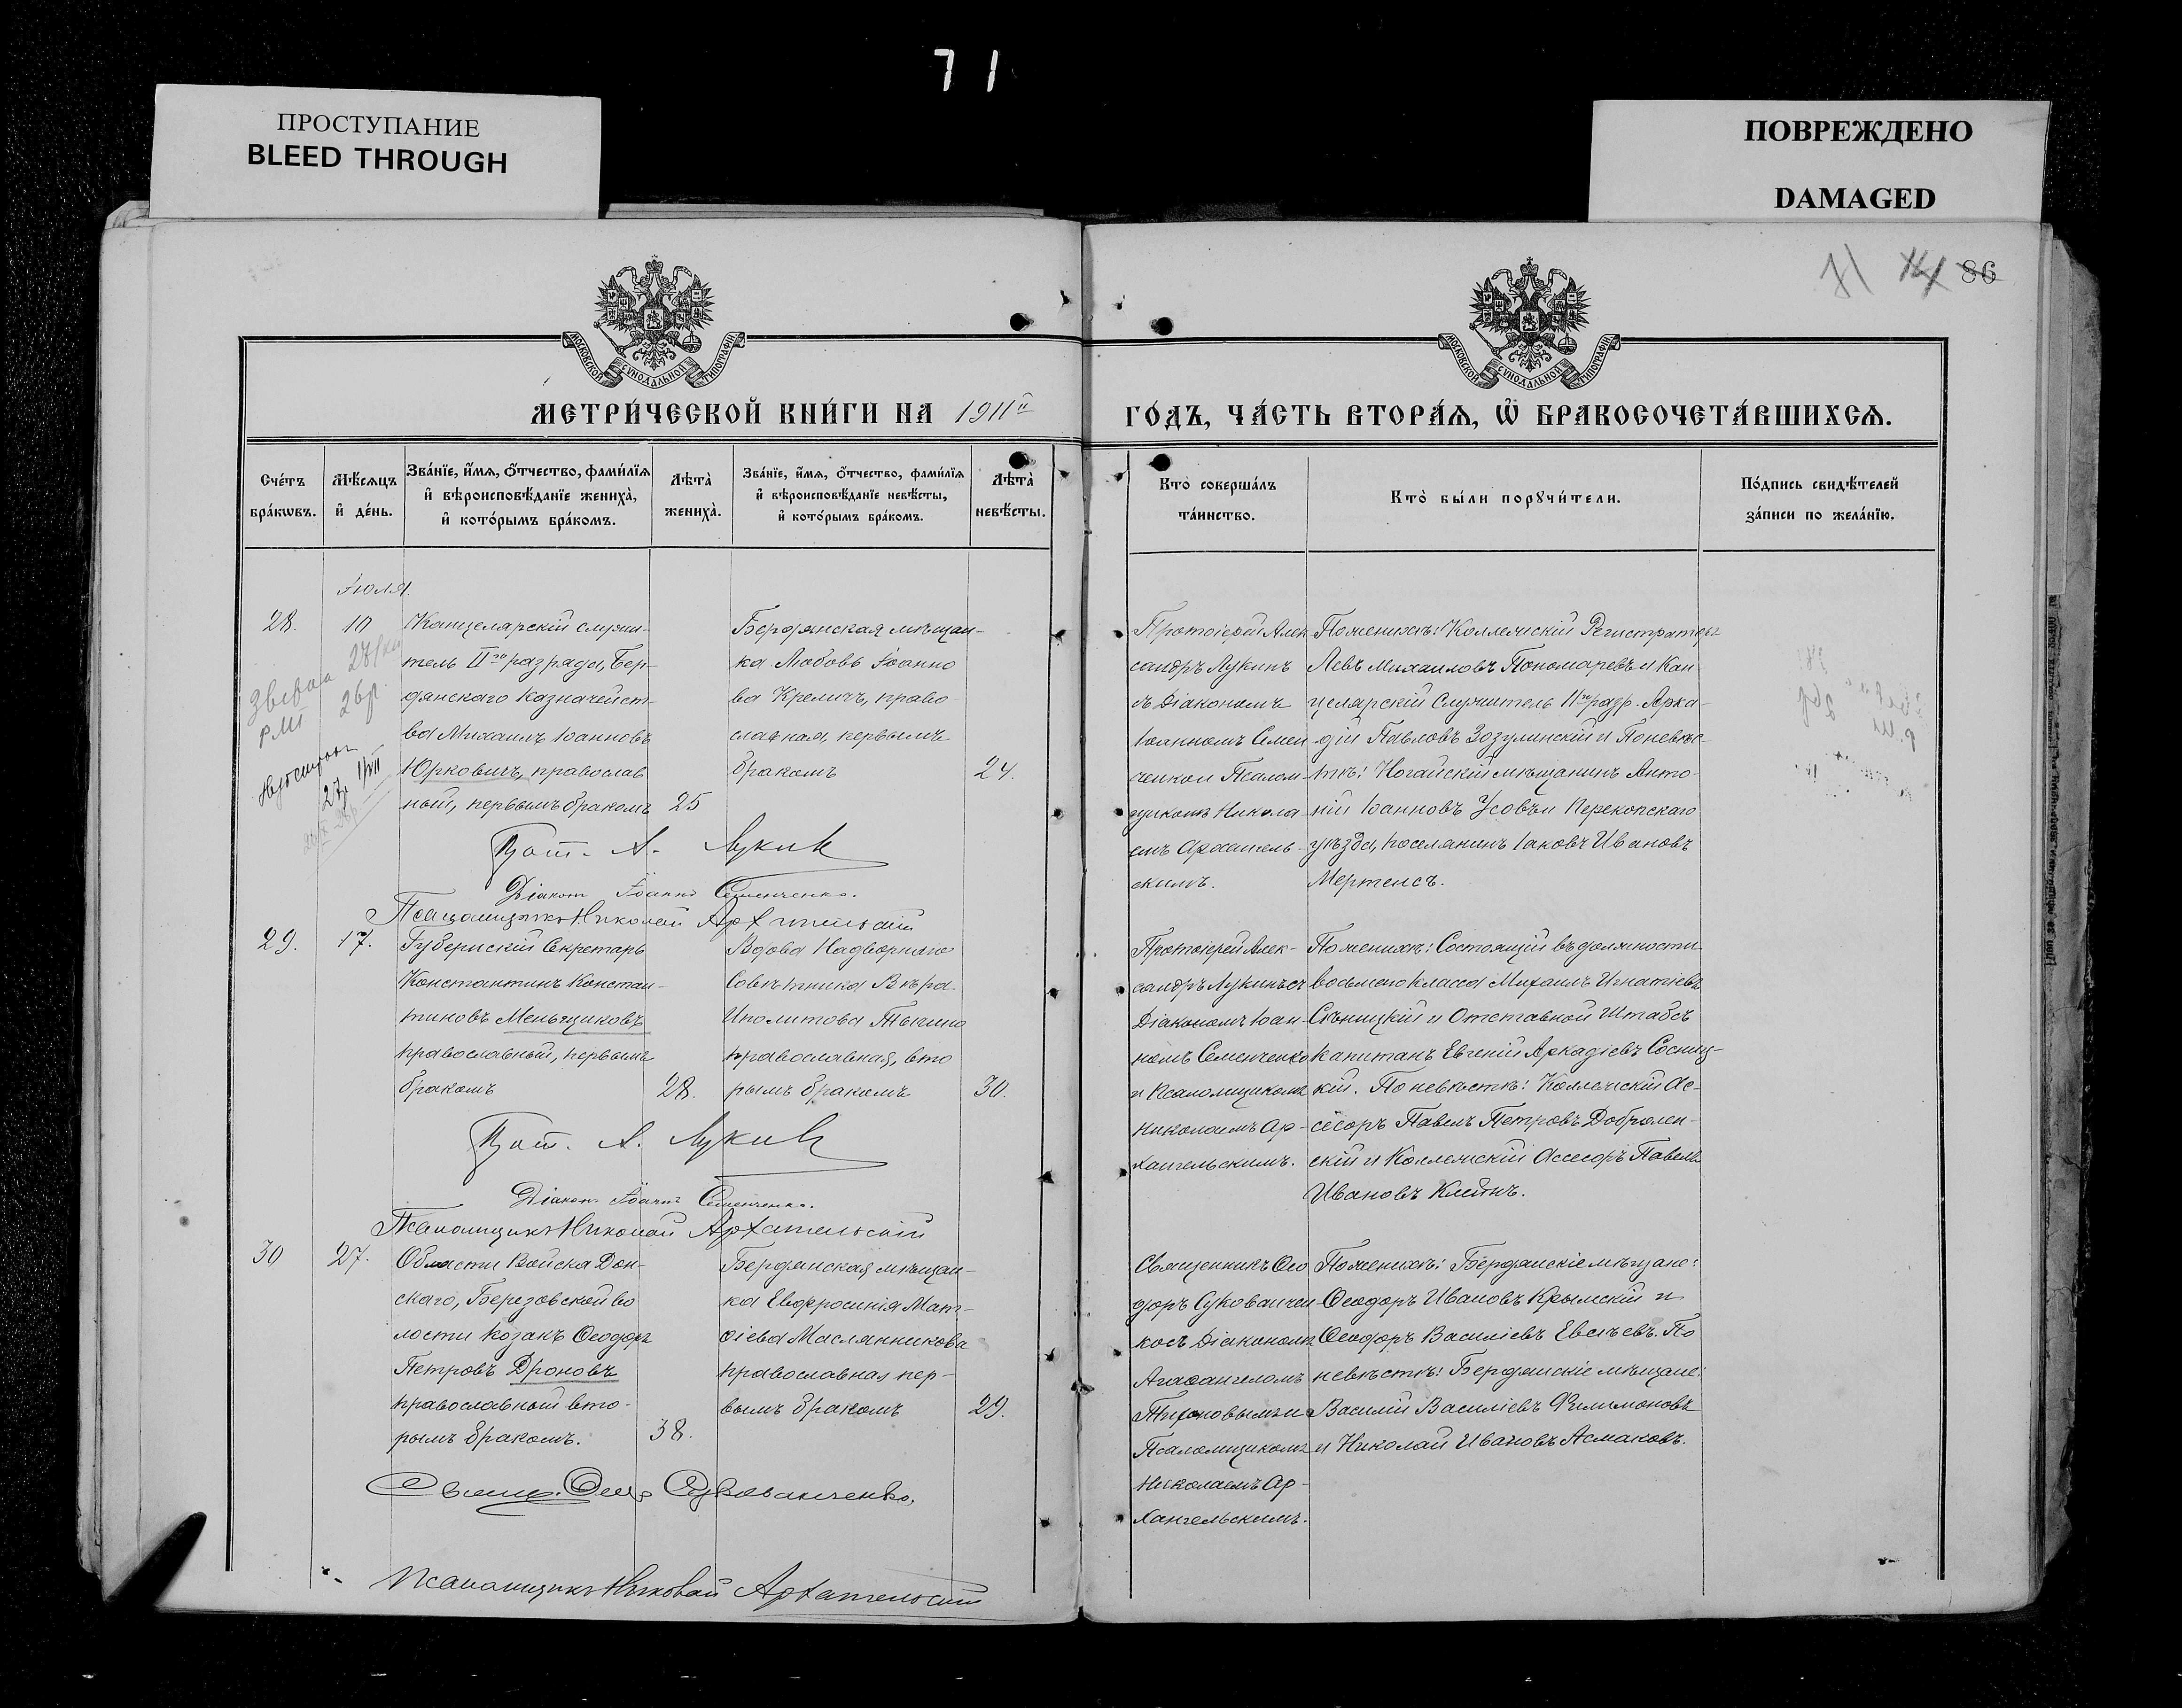 71
ПРОСТУПАНИЕ
BLEED THROUGH
ПОВРЕЖДЕНО
DAMAGED
86
МОСКОВСКОЙ СѴНОДАЛЬНОЙ ТИПОГРАФІИ
МОСКОВСКОЙ СѴНОДАЛЬНОЙ ТИПОГРАФІИ
МЕТРИ́ЧЕСКОЙ КНИ́ГИ НА 1911й
ГО́ДЪ, ЧА́СТЬ ВТОРА́Я, Ѡ БРАКОСОЧЕТА́ВШИХСЯ.
Сче́тъ
бра́кѡвъ.
Мѣ́сяцъ
и҆ де́нь.
Зва́нїе, и҆́мя, ѻ҆́тчество, фами́лїя
и҆ вѣроисповѣ́данїе жениха̀,
и҆ кото́рымъ бра́комъ.
Лѣта̀
жениха̀.
Зва́нїе, и҆́мя, ѻ҆́тчество, фами́лїя
и҆ вѣроисповѣ́данїе невѣ́сты,
и҆ кото́рымъ бра́комъ.
Лѣта̀
невѣ́сты.
Кто̀ соверша́лъ
та́инство.
Кто̀ бы́ли порꙋчи́тели.
По́дпись свидѣ́телей
за́писи по жела́нїю.
Іюля.
28.
10
Канцелярскій служи-
тель II го разряда, Бер-
дянскаго Казначейст-
ва Михаилъ Іоанновъ
Юрковичъ, православ
ный, первымъ бракомъ
25
Бердянская мѣщан-
ка Любовь Іоанно
ва Кремичъ, право
славная, первымъ
бракомъ
24.
Протоіерей Алек
сандръ Лукинъ
съ Діакономъ
Іоанномъ Семен
ченкои Псалом-
щикомъ Никола
емъ Архангель-
скимъ.
По женихѣ: Коллежскій Регистраторъ
Левъ Михаиловъ Пономаревъ и Кан
целярскій Служитель II го разр. Арка-
дій Павловъ Зозулинскій и По невѣс-
тѣ: Ногайскій мѣщанинъ Анто-
ній Іоанновъ Усовъ и Перекопскаго
уѣзда, поселянинъ Іаковъ Ивановъ
Мертенсъ.
Прот. А. Лукинъ
Діаконъ Іоаннъ Семенченко.
Псаломщикъ Николай Архангельскій
29.
17.
Губернскій Секретарь
Константинъ Констан-
тиновъ Меньщиковъ
православный, первымъ
бракомъ
28.
Вдова Надворнаго
Совѣтника Вѣра
Иполитова
православная, вто
рымъ бракомъ
30.
Протоіерей Алек-
сандръ Лукинъ съ
Діакономъ Іоан-
номъ Семенченко
и Псаломщикомъ
Николаемъ Ар-
хангельскимъ.
По женихѣ: Состоящій въ должности
восьмого класса Михаилъ Игнатіевъ
Сѣницкій и Отставной Штабсъ
капитанъ Евгеній Аркадіевъ Сосниц-
кій. По невѣстѣ: Коллежскій Ас-
сесоръ Павелъ Петровъ Добролен-
скій и Коллежскій Ассесоръ Павелъ
Ивановъ Клейнъ.
Прот. А. Лукинъ
Діаконъ Іоаннъ Семенченко.
Псаломщикъ Николай Архангельскій
30
27.
Области Войска Дон-
скаго, Березовской во
лости козакъ Ѳеодоръ
Петровъ Дроновъ
православный вто-
рымъ бракомъ.
38.
Бердянская мѣщан-
ка Евфросинія Мат-
ѳіева Маслянникова
православная пер-
вымъ бракомъ
29.
Священникъ Ѳео
доръ Сукованчен
косъ Діакономъ
Агаѳангеломъ
Тихоновымъ и
Псаломщикомъ
Николаемъ Ар-
хангельскимъ.
По женихѣ: Бердянскіе мѣщане:
Ѳеодоръ Ивановъ Крымскій и
Ѳеодоръ Василіевъ Евсѣевъ. По
невѣстѣ: Бердянскіе мѣщане:
Василій Василіевъ Филимоновъ
и Николай Ивановъ Асмаковъ.
Свящ. Ѳеод. Сукованченко,
Псаломщикъ Николай Архангельскій